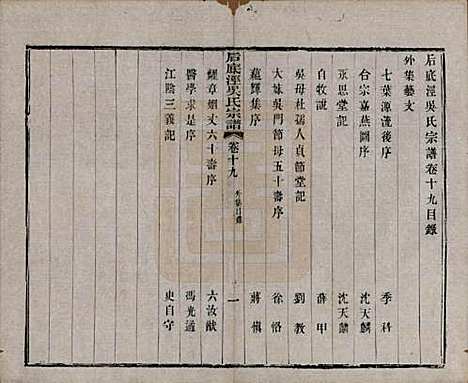 后底涇吳氏宗譜卷十九目錄
外集藝文
七葉源流後序 季科
合宗嘉燕圖序 沈天麟
永思堂記 沈天麟
自牧說 薛甲
吳母杜孺人貞節堂記 劉教
大妹吳門節母五十壽序 徐恪
蘊輝集序 蔣慎
后底涇吳氏宗譜 卷十九 外集目錄 一
耀章烟丈六十壽序 六汝猷
醫學求是序 馮光適
江陰三義記 史自守